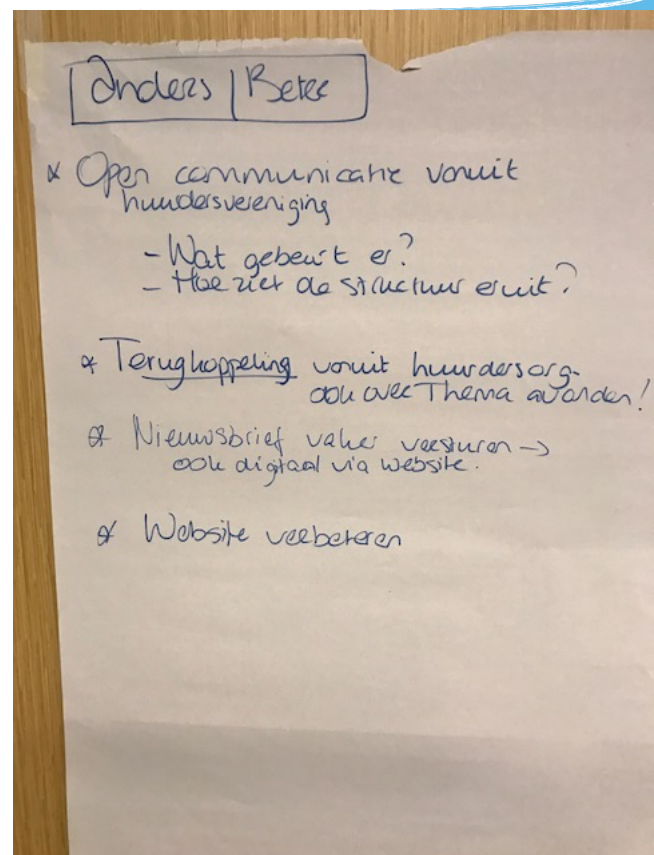 Anders | Beter
* Open communicatie vanuit
huurdersvereniging
- Wat gebeurt er?
- Hoe ziet de structuur eruit?
* Terugkoppeling vanuit huurdersorg.
ook over Thema avonden!
* Nieuwsbrief vaker versturen →
ook digitaal via website.
* Website verbeteren